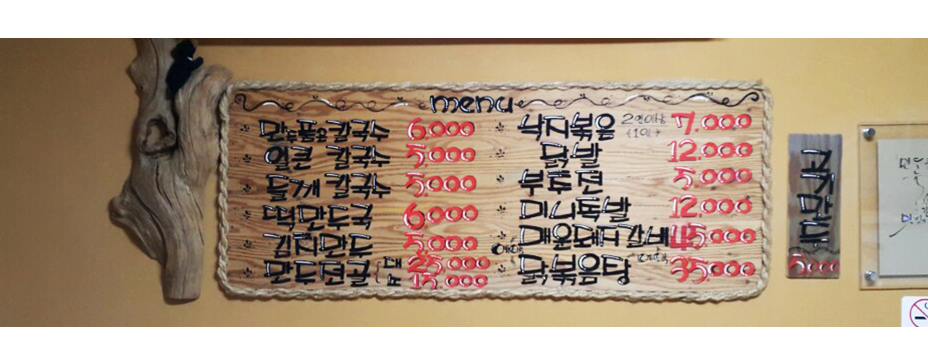 menu
만두품은 칼국수 6.000
얼큰 칼국수 5.000
들깨 칼국수 5.000
떡만두국 6.000
김치만두 5.000
만두전골 大 25.000
中 15.000
낙지볶음 7.000
닭발 12.000
부투전 5.000
미니족발 12.000
매운돼지갈비 45.000
닭볶음탕 35.000
5000